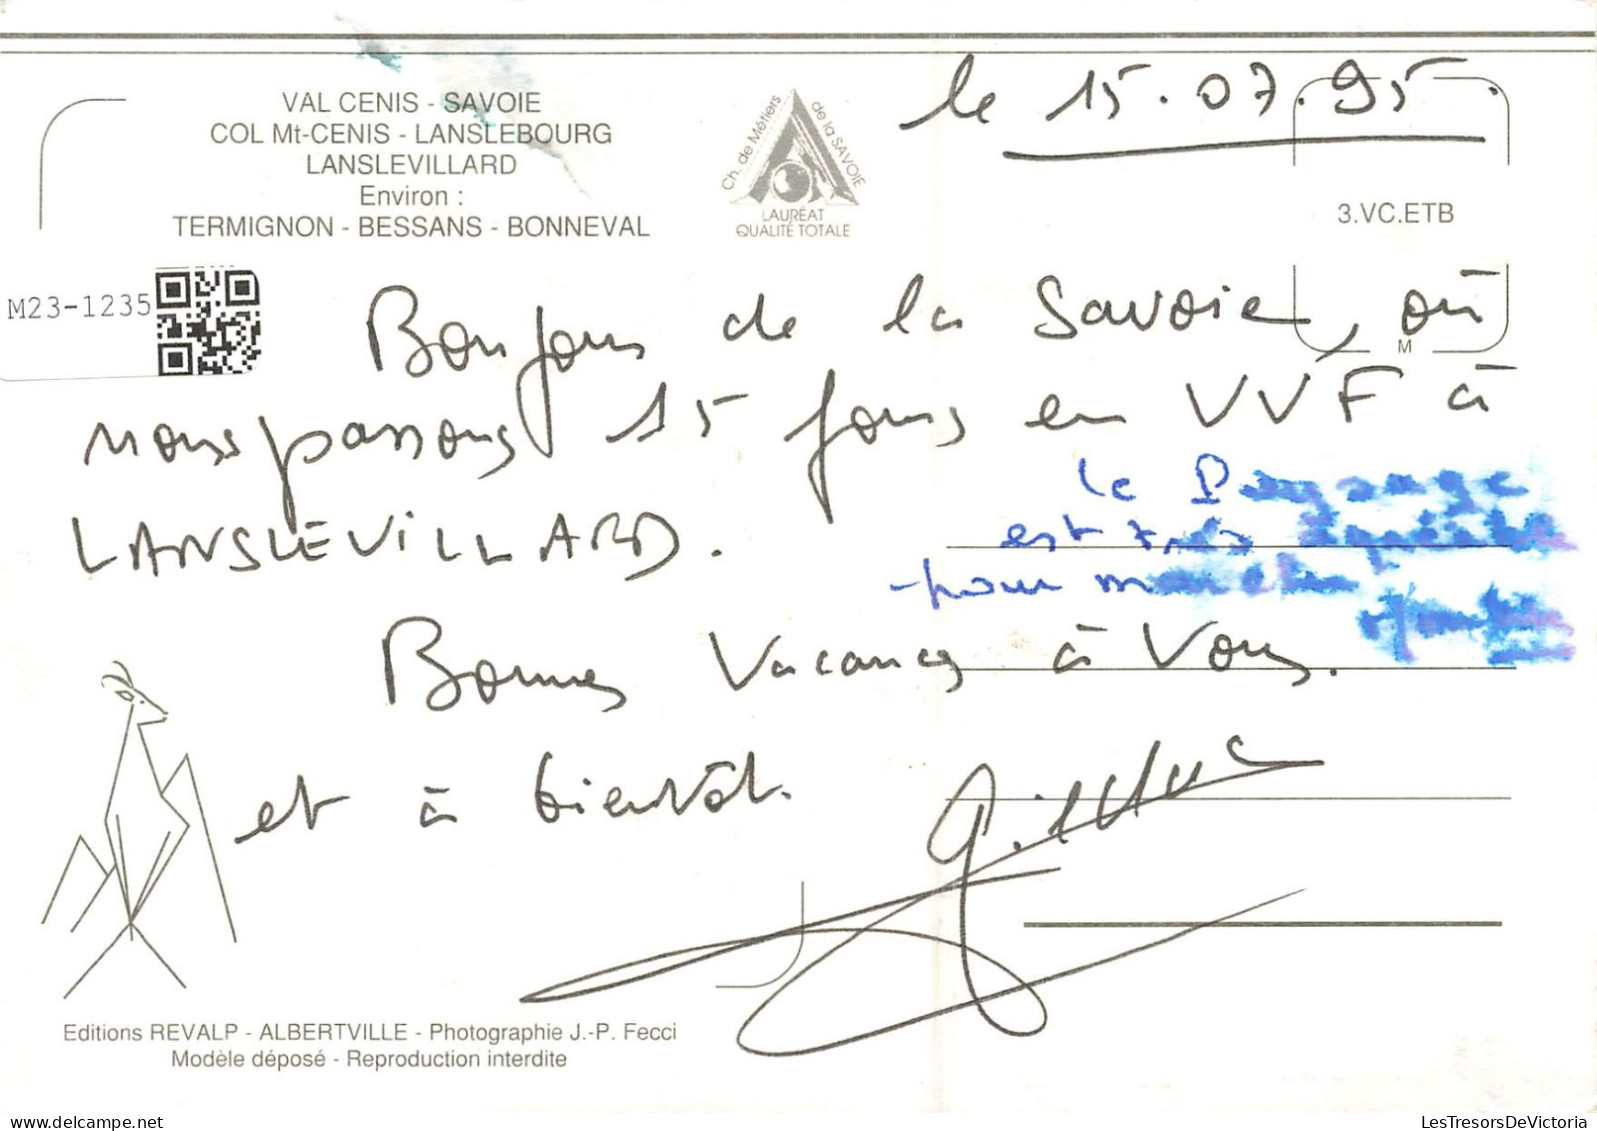 le 15.07.95.
VAL CENIS - SAVOIE
COL Mt-CENIS - LANSLEBOURG
LANSLEVILLARD
Environ :
TERMIGNON - BESSANS - BONNEVAL
Ch. de Métiers de la SAVOIE
LAURÉAT
QUALITÉ TOTALE
3.VC.ETB
M23-1235
M
Bonjour de la Savoie, où
nous passons 15 jours en VVF à
LANSLEVILLARD.
le Paysage
est très
pour marcher
Bonnes Vacances à Vous.
et à bientôt.
Editions REVALP - ALBERTVILLE - Photographie J.-P. Fecci
Modèle déposé - Reproduction interdite
LesTresorsDeVictoria